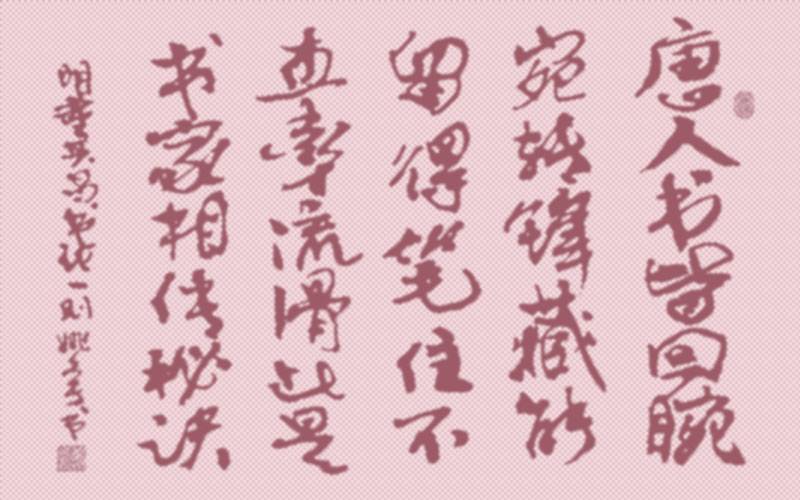 唐人书皆回腕
宛转锋藏能
留得笔住不
直率流滑此是
书家相传秘诀
明董其昌书论一则 姚